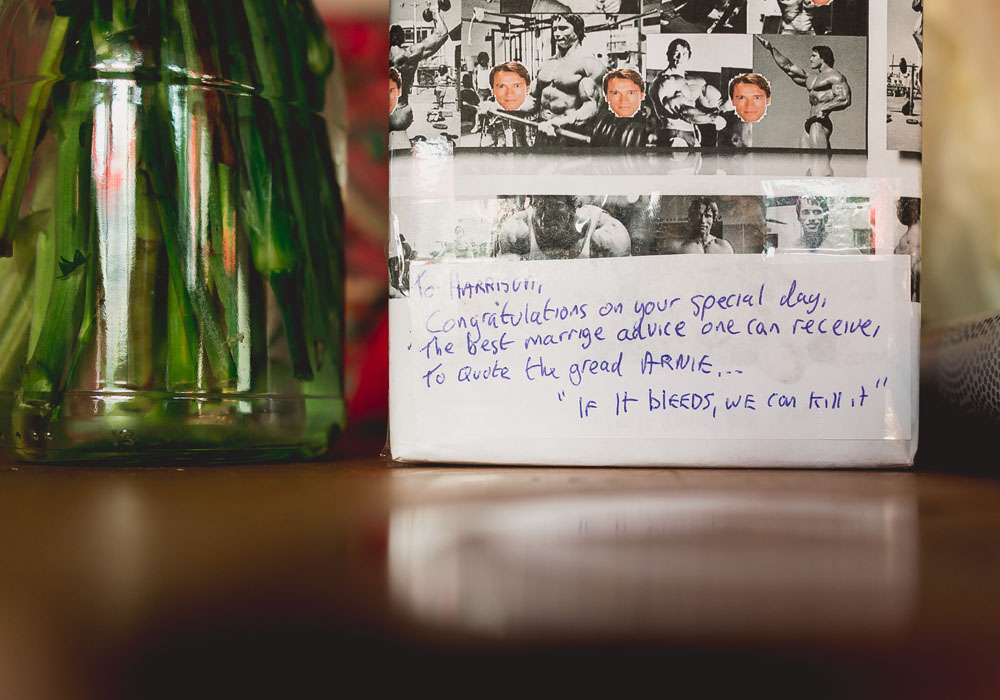 To HARRISON,
Congratulations on your special day,
The best marrige advice one can receive,
To Quote the gread ARNIE,...
"IF It blEEDS, WE can kill it"